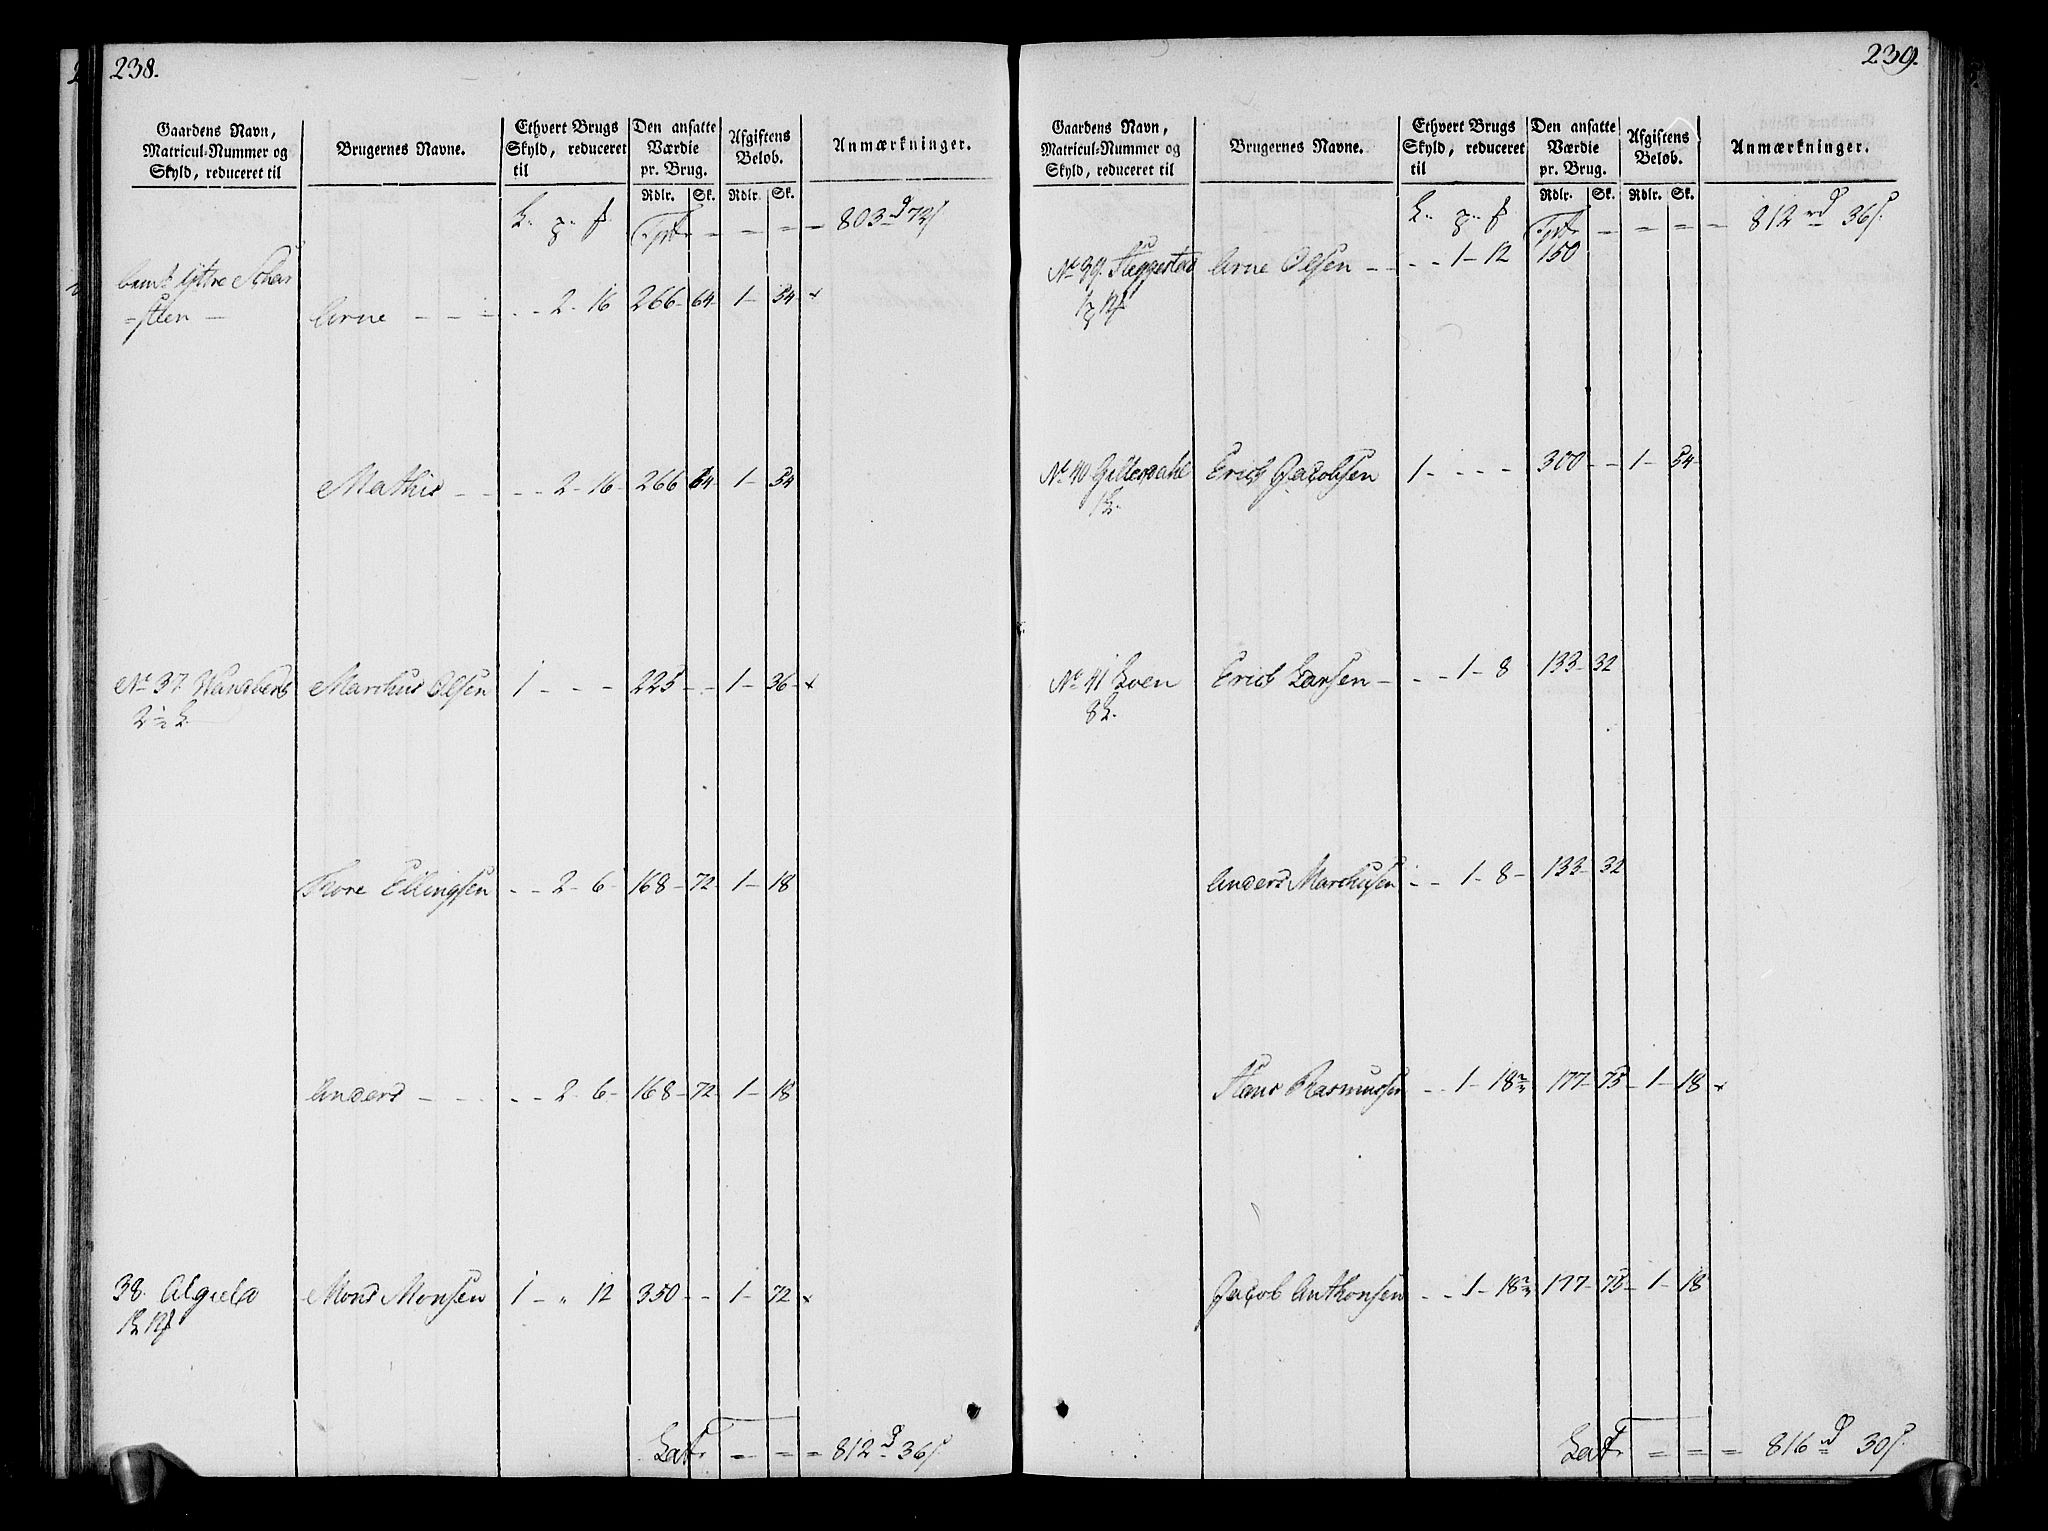 238.
Gaardens Navn, Matricul-Nummer og Skyld, reduceret til
Brugernes Navne.
Ethvert Brugs Skyld, reduceret til
Den ansatte Værdie pr. Brug.
Afgiftens Belob.
Anmærkninger.
Rdlr. Sk. Rdlr. Sk.
Trpt. — — — — 803
Arne — — — 2 - 16 266 - 64 - 1 - 54 - x
steen —
Mathis — — — 2 - 16 - 266 64 - 1 - 54
No 37. Marchus Olsen 1 - - - 225 - - 1 - 36 - x
2 1/2
Tore Ellingsen - - 2 - 6 - 168 - 72 - 1 - 18
Anders — — — 2 - 6 - 168 - 72 - 1 - 18
38. Mons Monsen 1 - " 12 350 - - 1 - 72 - x
Lat. = = = 812 36
239.
Gaardens Navn, Matricul-Nummer og Skyld, reduceret til
Brugernes Navne.
Ethvert Brugs Skyld, reduceret til
Den ansatte Værdie pr. Brug.
Afgiftens Belob.
Anmærkninger.
Rdlr. Sk. Rdlr. Sk.
Trpt. — = = = 812 rd 36
No 39. Heggestad Arne Olsen - - - - 1 - 12 150
No 40 Erich Jacobsen 1 - - - - 300 - - 1 - 54 -
No 41 Loen Erich Larsen - - - 1 - 8 133 - 32
Anders Marchusen - - 1 - 8 - 133 - 32
Hans Rasmussen - - 1 - 18 177 - 75 - 1 - 18 x
Jacob Anthonsen - - 1 - 18 177 - 75 - 1 - 18
Lat. = = = 816 rd 30